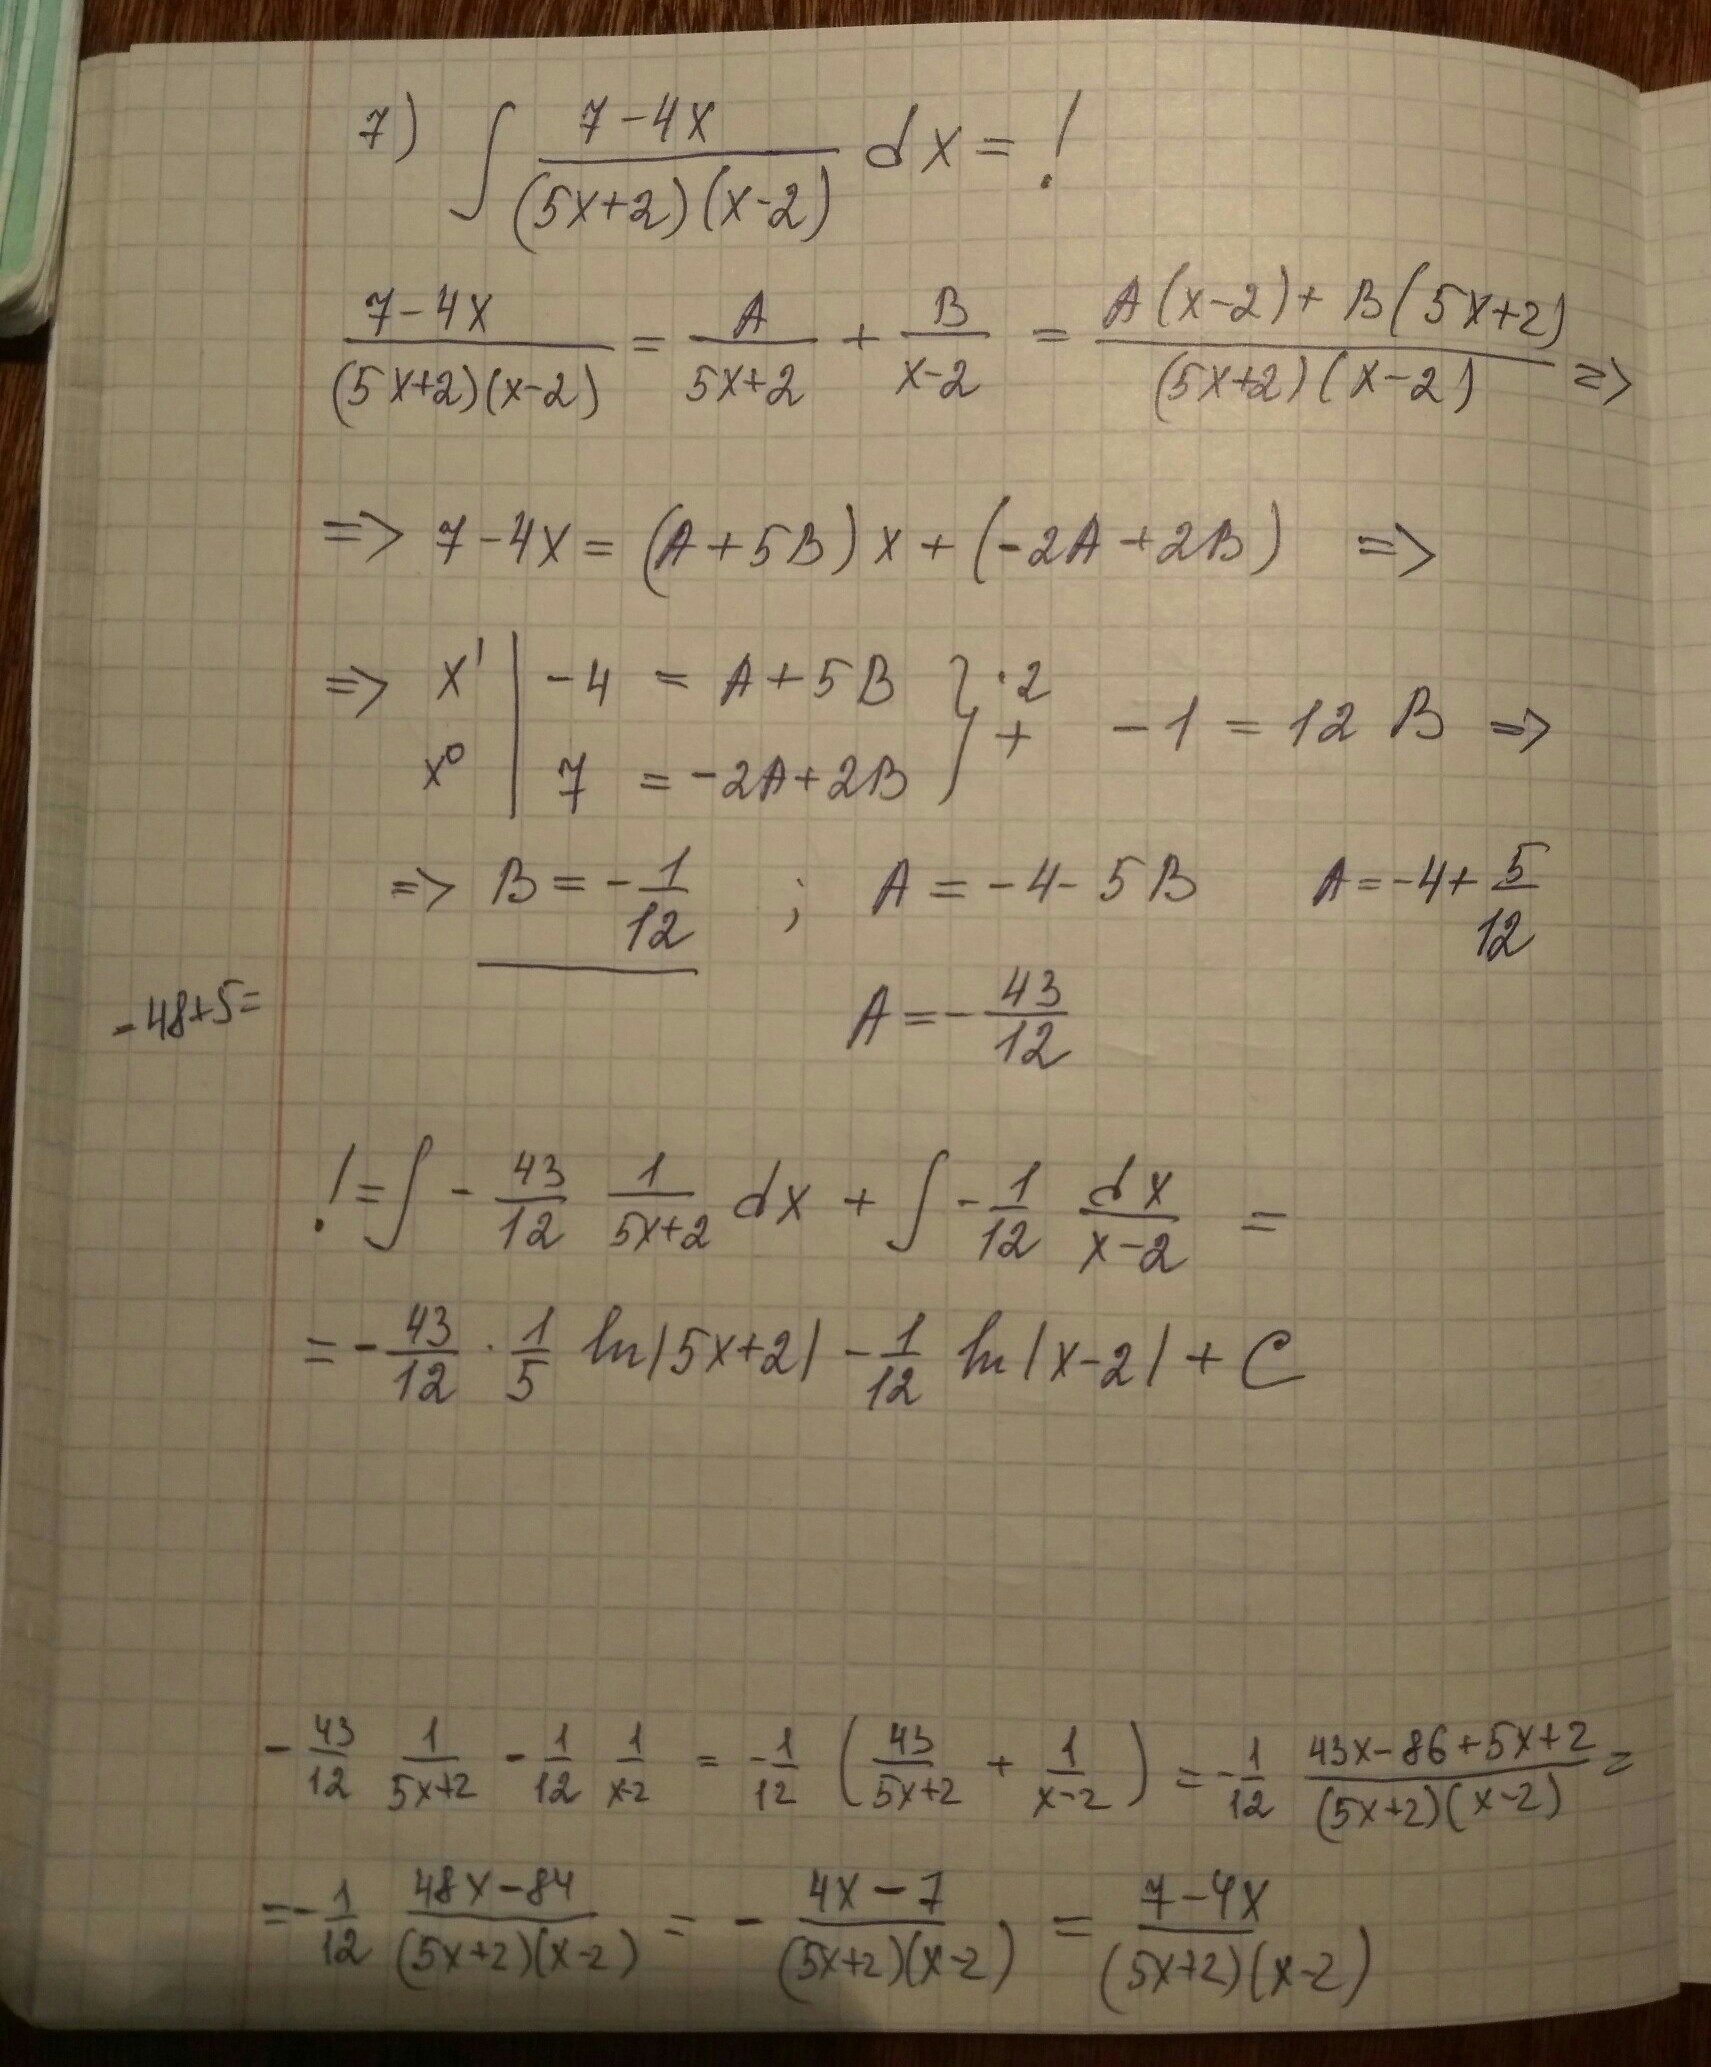 7) ∫ (7-4x)/((5x+2)(x-2)) dx = !
(7-4x)/((5x+2)(x-2)) = A/(5x+2) + B/(x-2) = (A(x-2)+B(5x+2))/((5x+2)(x-2)) =>
=> 7-4x = (A+5B)x + (-2A+2B) =>
=> x¹ | -4 = A+5B } ·2
x⁰ | 7 = -2A+2B } + -1 = 12 B =>
=> B = -1/12 ; A = -4-5B A = -4+5/12
-48+5=
A = -43/12
! = ∫ -43/12 1/(5x+2) dx + ∫ -1/12 dx/(x-2) =
= -43/12 · 1/5 ln|5x+2| - 1/12 ln|x-2| + C
-43/12 1/(5x+2) - 1/12 1/(x-2) = -1/12 (43/(5x+2) + 1/(x-2)) = -1/12 (43x-86+5x+2)/((5x+2)(x-2)) =
= -1/12 (48x-84)/((5x+2)(x-2)) = - (4x-7)/((5x+2)(x-2)) = (7-4x)/((5x+2)(x-2))